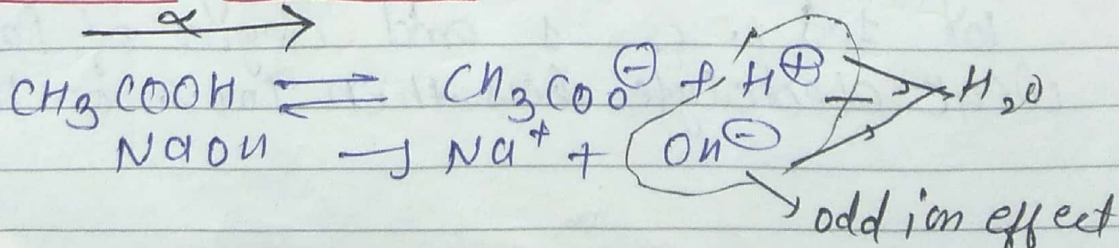 α
CH3COOH ⇌ CH3COO⊖ + H⊕ → H2O
NaOH → Na+ + OH⊖
odd ion effect